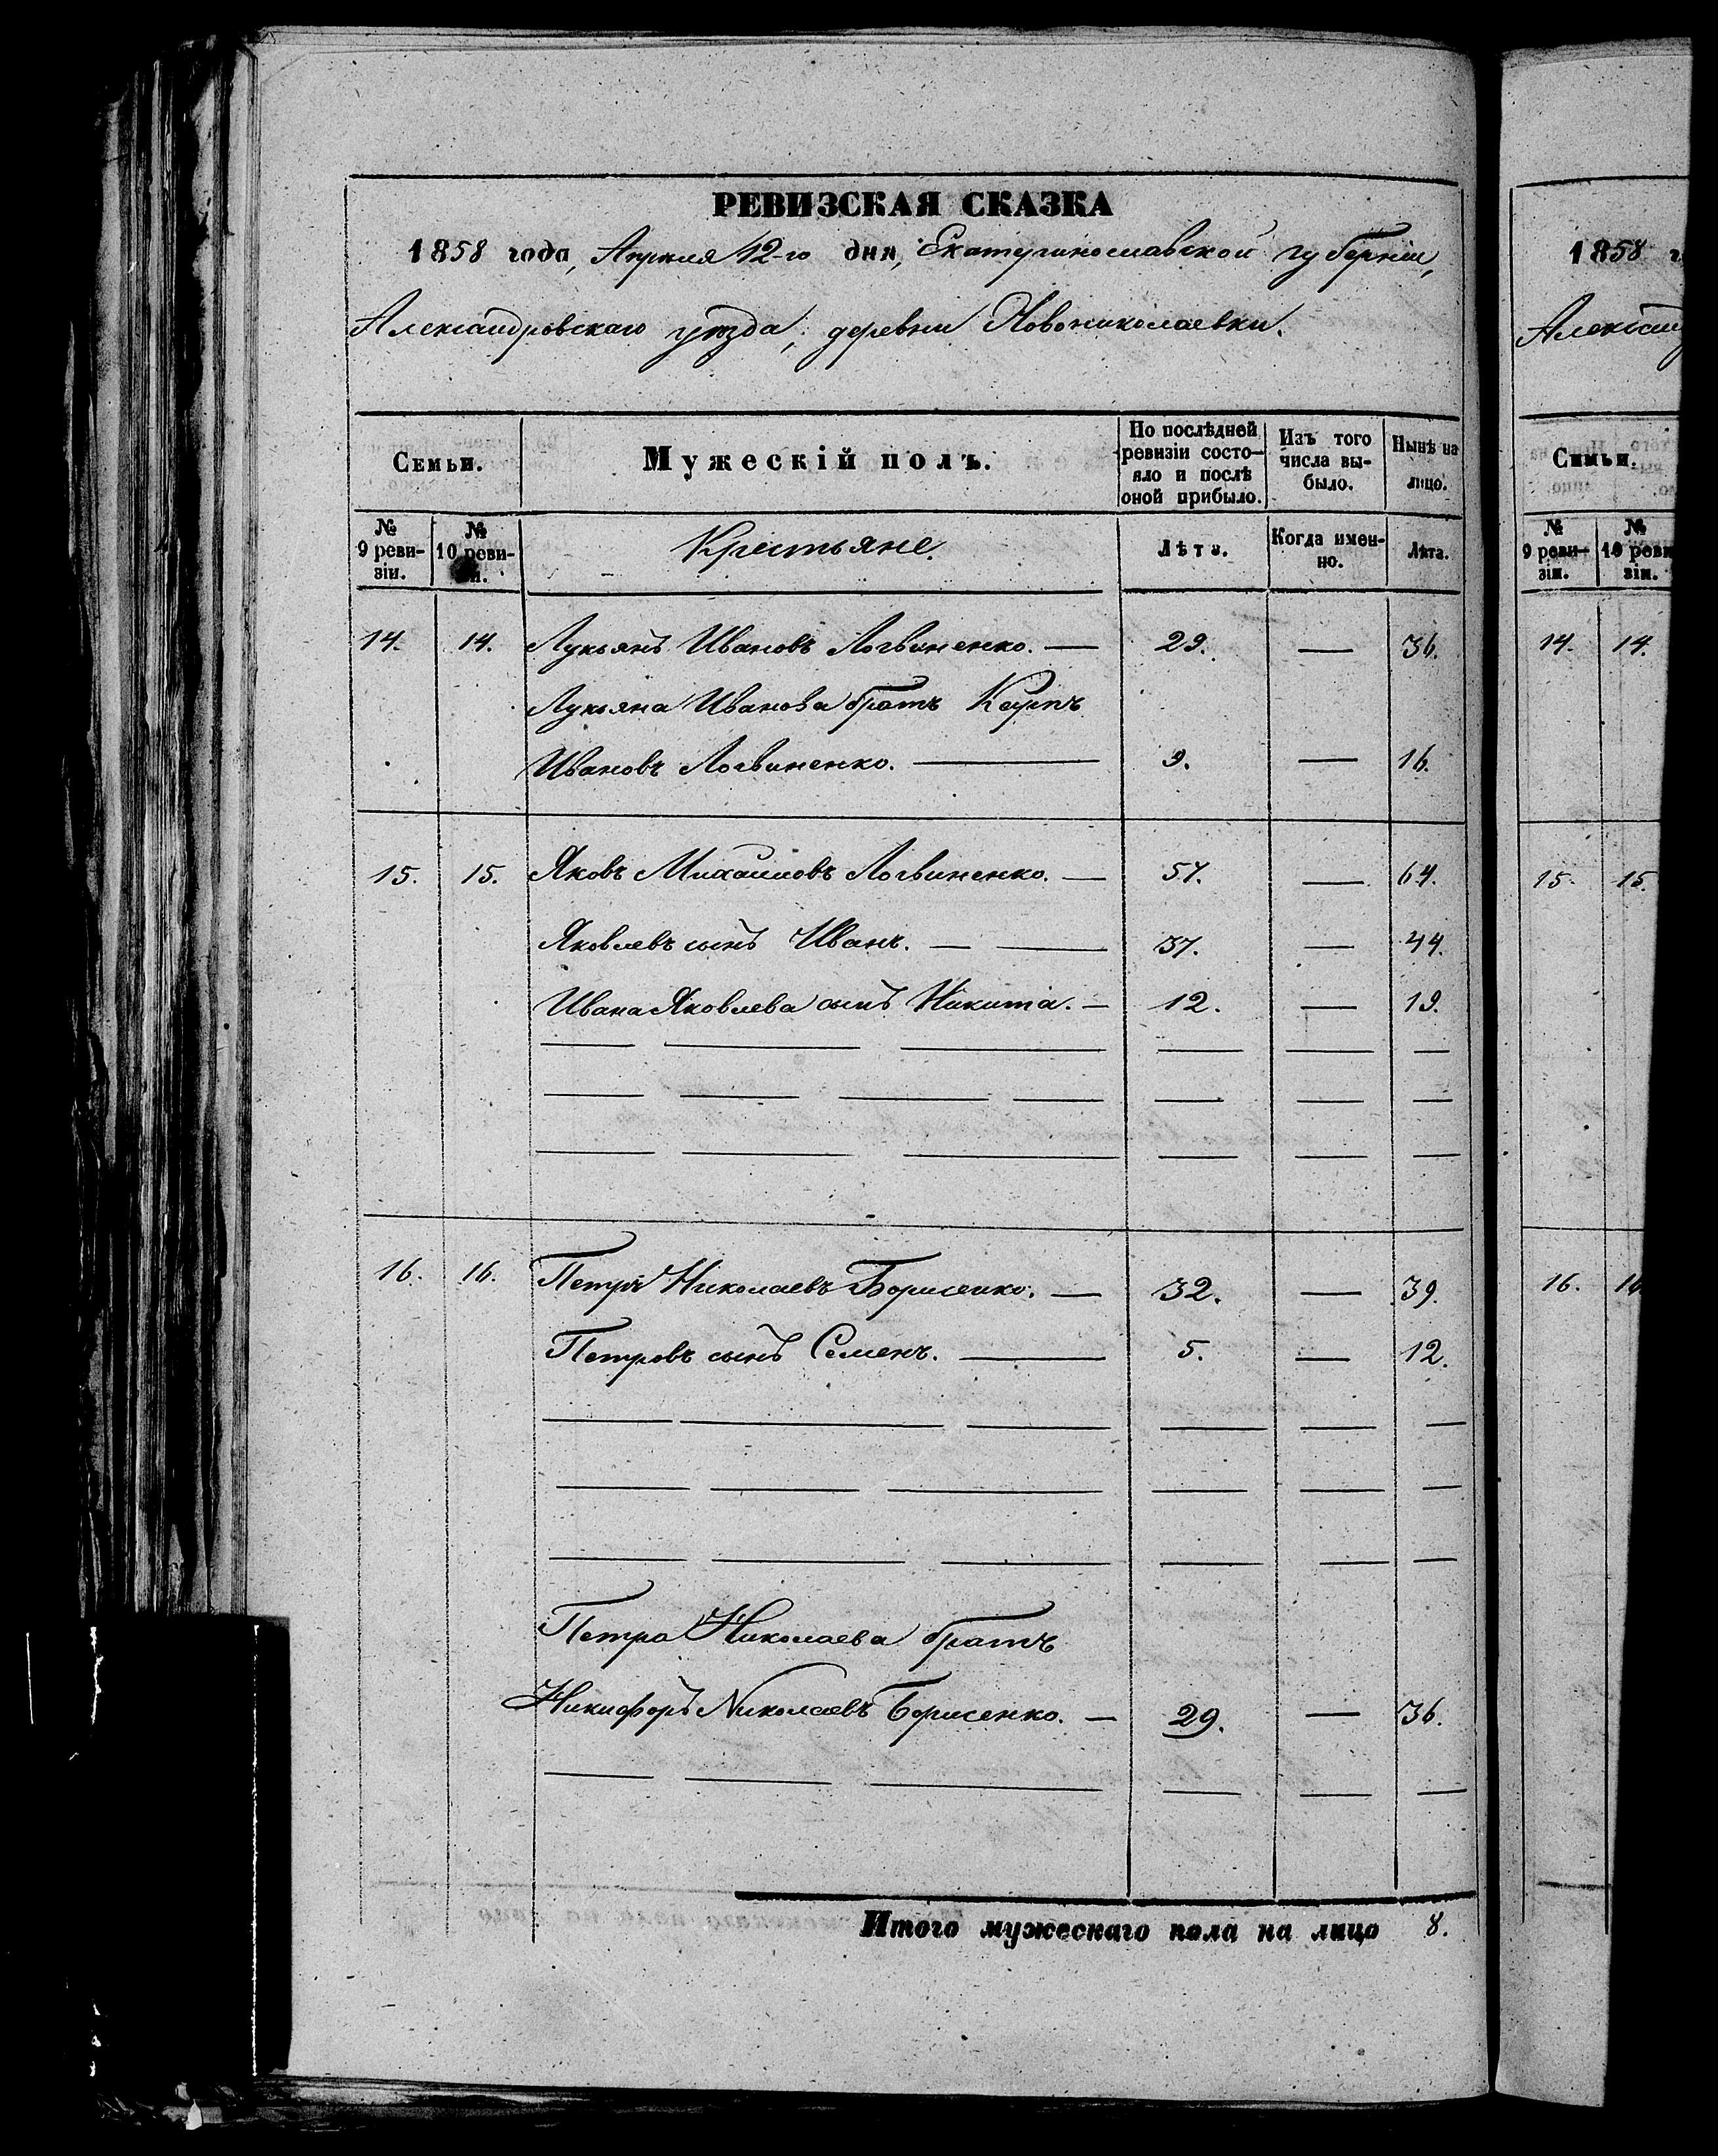 РЕВИЗСКАЯ СКАЗКА
1858 года, Апреля 12-го дня, Екатеринославской губерніи,
Александровскаго уѣзда, деревни Новониколаевки.
Семьи.
Мужескій полъ.
По послѣдней ревизіи состояло и послѣ оной прибыло.
Изъ того числа выбыло.
Нынѣ на лицо.
№ 9 ревизіи.
№ 10 реви
Крестьяне
Лѣта.
Когда именно.
Лѣта.
14. 14. Лукьянъ Ивановъ Логвиненко. — 29. — 36.
Лукьяна Иванова братъ Карпъ
Ивановъ Логвиненко. — 9. — 16.
15. 15. Яковъ Михайловъ Логвиненко. — 57. — 64.
Яковлевъ сынъ Иванъ. — — 37. — 44.
Ивана Яковлева сынъ Никита. — 12. — 19.
16. 16. Петръ Николаевъ Борисенко. — 32. — 39.
Петровъ сынъ Семенъ. — 5. — 12.
Петра Николаева братъ
Никифоръ Николаевъ Борисенко. — 29. — 36.
Итого мужескаго пола на лицо 8.
1858
Семьи.
№ 9 ревизіи.
№ 10 ревизіи.
14. 14.
15. 15.
16.